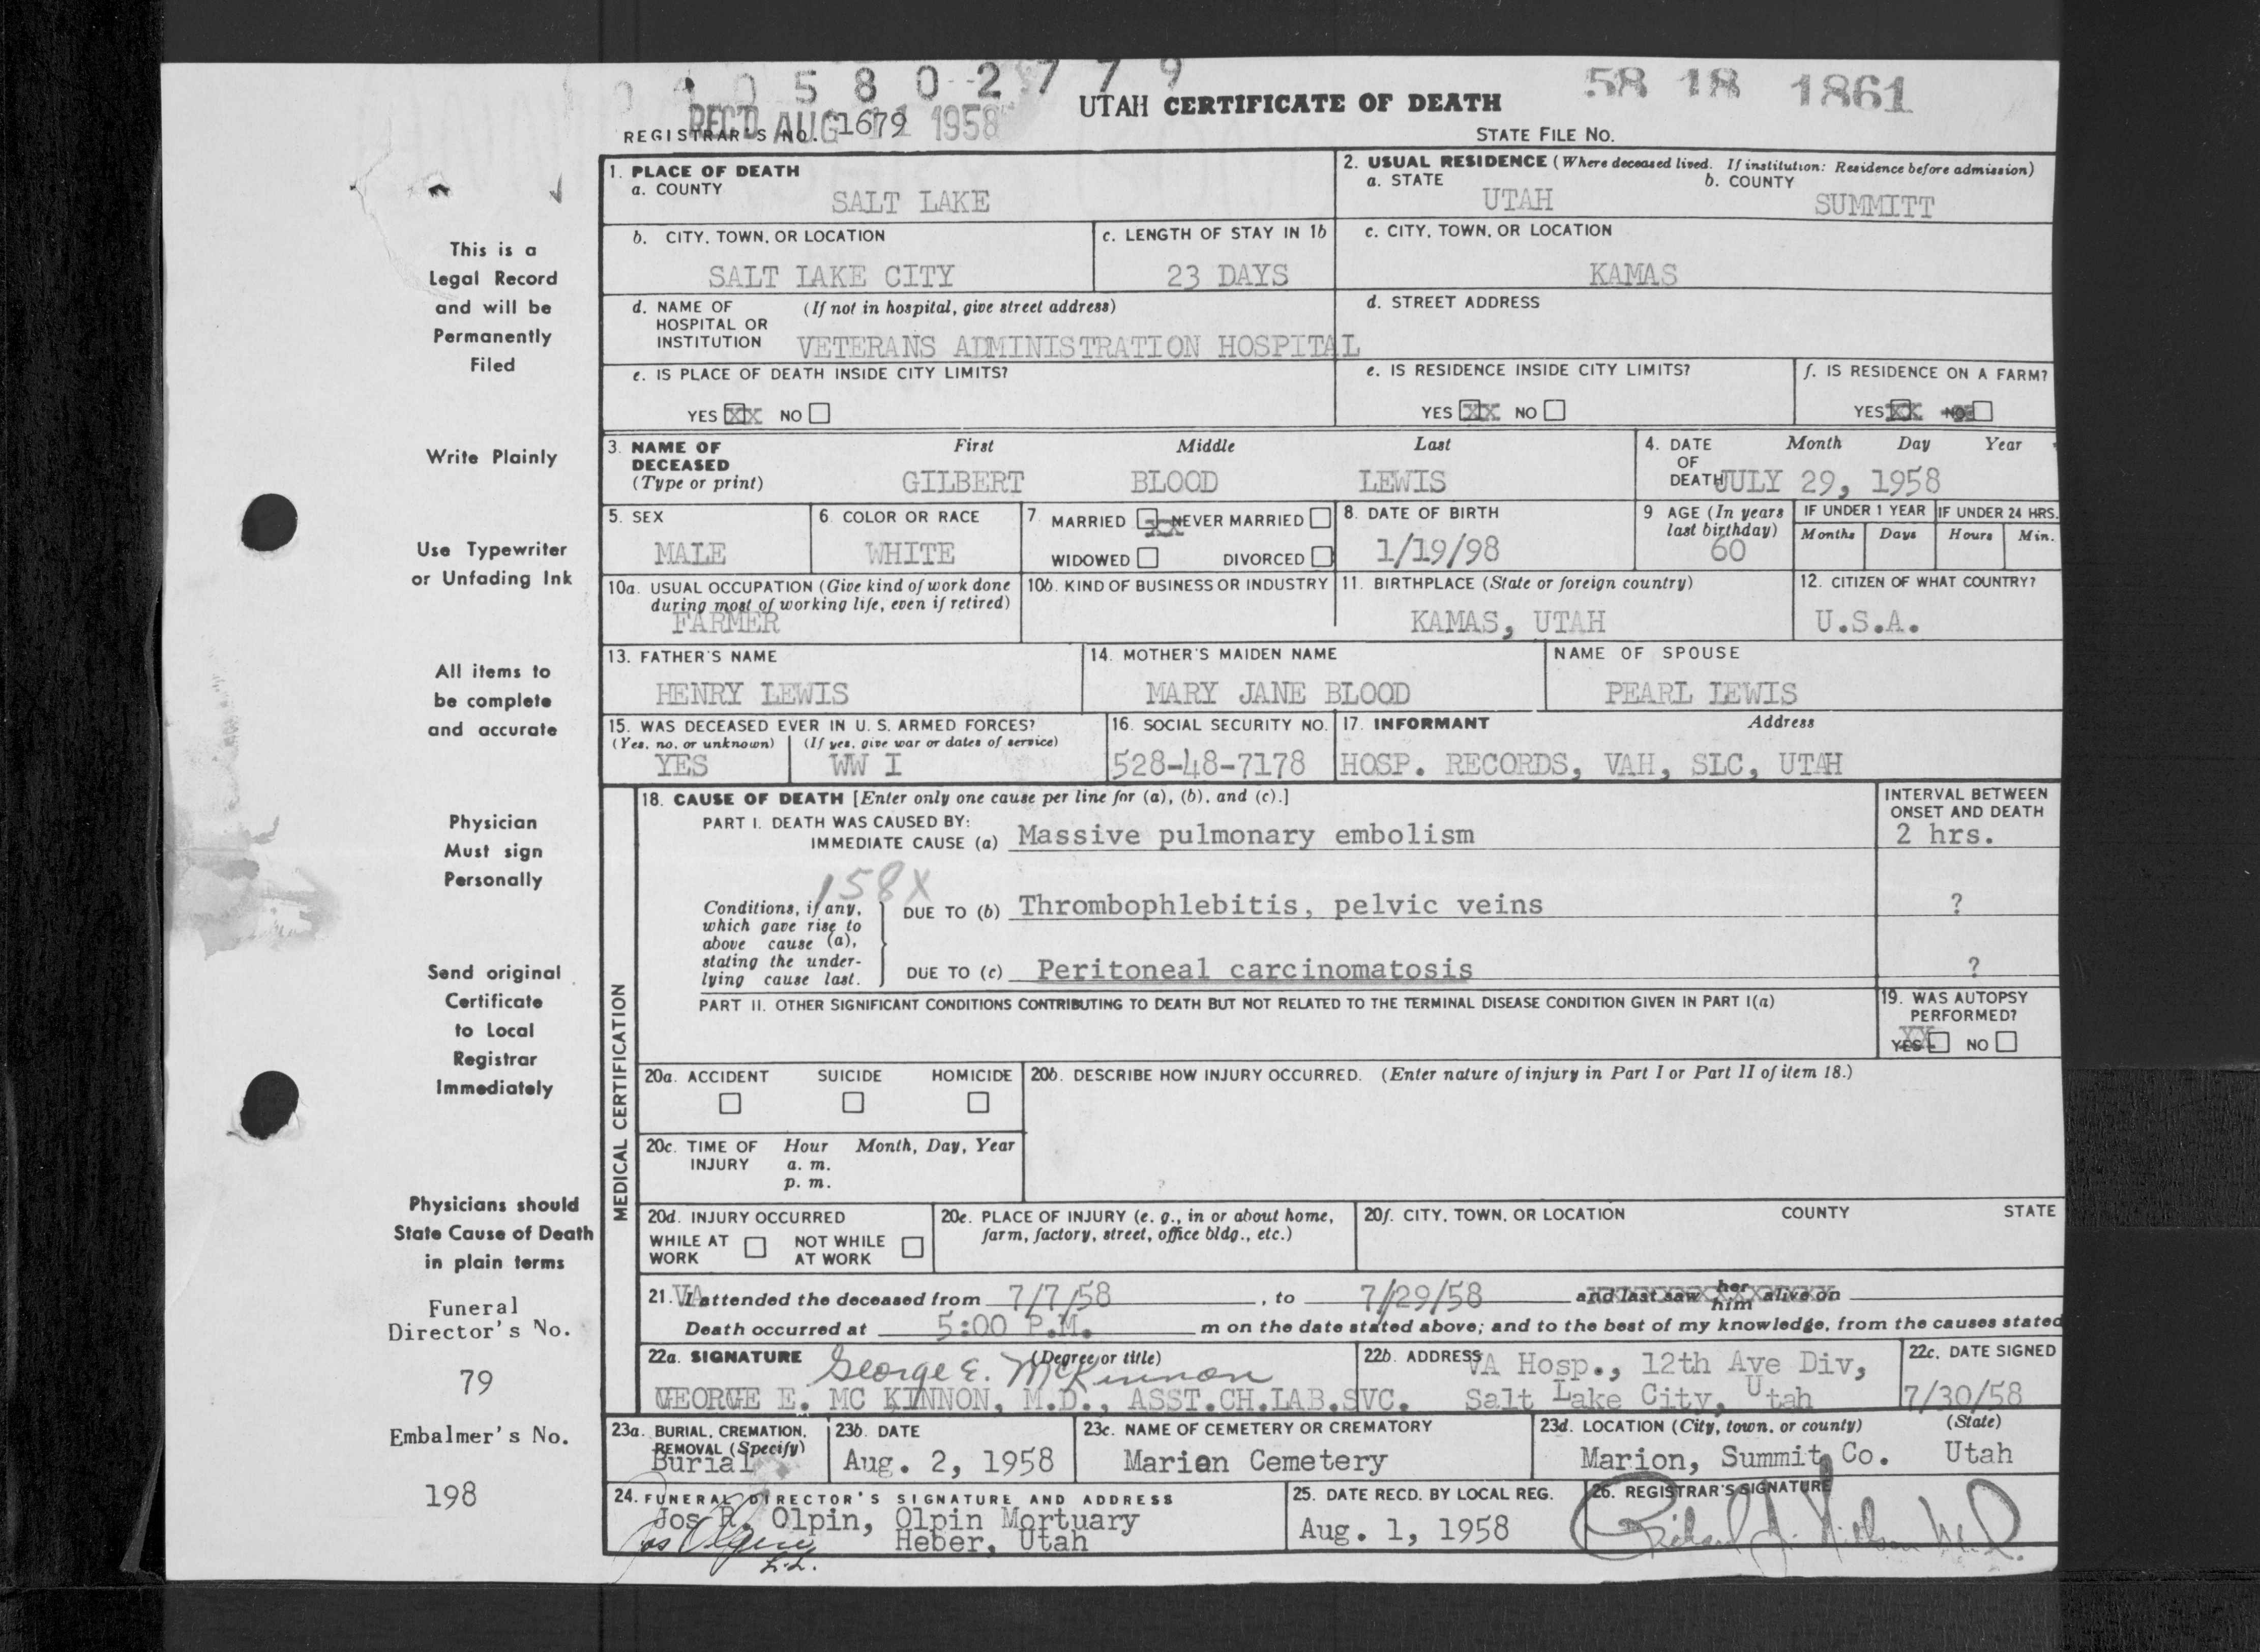 0 1 0 5 8 0 2 7 7 9
58 18 1861
REC'D AUG 11 1958
UTAH CERTIFICATE OF DEATH
REGISTRAR'S NO. 1679
STATE FILE NO.
This is a
Legal Record
and will be
Permanently
Filed
Write Plainly
Use Typewriter
or Unfading Ink
All items to
be complete
and accurate
Physician
Must sign
Personally
Send original
Certificate
to Local
Registrar
Immediately
Physicians should
State Cause of Death
in plain terms
Funeral
Director's No.
79
Embalmer's No.
198
1. PLACE OF DEATH
a. COUNTY
SALT LAKE
2. USUAL RESIDENCE (Where deceased lived. If institution: Residence before admission)
a. STATE b. COUNTY
UTAH SUMMITT
b. CITY, TOWN, OR LOCATION
SALT LAKE CITY
c. LENGTH OF STAY IN 1b
23 DAYS
c. CITY, TOWN, OR LOCATION
KAMAS
d. NAME OF (If not in hospital, give street address)
HOSPITAL OR
INSTITUTION VETERANS ADMINISTRATION HOSPITAL
d. STREET ADDRESS
e. IS PLACE OF DEATH INSIDE CITY LIMITS?
YES XX NO
e. IS RESIDENCE INSIDE CITY LIMITS?
YES XX NO
f. IS RESIDENCE ON A FARM?
YES XX NO
3. NAME OF First Middle Last
DECEASED
(Type or print) GILBERT BLOOD LEWIS
4. DATE Month Day Year
OF
DEATH JULY 29, 1958
5. SEX
MALE
6. COLOR OR RACE
WHITE
7. MARRIED XX NEVER MARRIED
WIDOWED DIVORCED
8. DATE OF BIRTH
1/19/98
9. AGE (In years
last birthday)
60
IF UNDER 1 YEAR
Months Days
IF UNDER 24 HRS.
Hours Min.
10a. USUAL OCCUPATION (Give kind of work done
during most of working life, even if retired)
FARMER
10b. KIND OF BUSINESS OR INDUSTRY
11. BIRTHPLACE (State or foreign country)
KAMAS, UTAH
12. CITIZEN OF WHAT COUNTRY?
U.S.A.
13. FATHER'S NAME
HENRY LEWIS
14. MOTHER'S MAIDEN NAME
MARY JANE BLOOD
NAME OF SPOUSE
PEARL LEWIS
15. WAS DECEASED EVER IN U. S. ARMED FORCES?
(Yes, no, or unknown) (If yes, give war or dates of service)
YES WW I
16. SOCIAL SECURITY NO.
528-48-7178
17. INFORMANT Address
HOSP. RECORDS, VAH, SLC, UTAH
MEDICAL CERTIFICATION
18. CAUSE OF DEATH [Enter only one cause per line for (a), (b), and (c).]
INTERVAL BETWEEN
ONSET AND DEATH
PART I. DEATH WAS CAUSED BY:
IMMEDIATE CAUSE (a) Massive pulmonary embolism 2 hrs.
158X
Conditions, if any,
which gave rise to
above cause (a),
stating the under-
lying cause last.
DUE TO (b) Thrombophlebitis, pelvic veins ?
DUE TO (c) Peritoneal carcinomatosis ?
PART II. OTHER SIGNIFICANT CONDITIONS CONTRIBUTING TO DEATH BUT NOT RELATED TO THE TERMINAL DISEASE CONDITION GIVEN IN PART I(a)
19. WAS AUTOPSY
PERFORMED?
XX
YES NO
20a. ACCIDENT SUICIDE HOMICIDE
20b. DESCRIBE HOW INJURY OCCURRED. (Enter nature of injury in Part I or Part II of item 18.)
20c. TIME OF Hour Month, Day, Year
INJURY a. m.
p. m.
20d. INJURY OCCURRED
WHILE AT NOT WHILE
WORK AT WORK
20e. PLACE OF INJURY (e. g., in or about home,
farm, factory, street, office bldg., etc.)
20f. CITY, TOWN, OR LOCATION COUNTY STATE
21. VA I attended the deceased from 7/7/58, to 7/29/58 and last saw her him alive on
Death occurred at 5:00 P.M. m on the date stated above; and to the best of my knowledge, from the causes stated
22a. SIGNATURE (Degree or title)
George E. McKinnon
GEORGE E. MC KINNON, M.D., ASST.CH.LAB.SVC.
22b. ADDRESS VA Hosp., 12th Ave Div,
Salt Lake City, Utah
22c. DATE SIGNED
7/30/58
23a. BURIAL, CREMATION,
REMOVAL (Specify)
Burial
23b. DATE
Aug. 2, 1958
23c. NAME OF CEMETERY OR CREMATORY
Marion Cemetery
23d. LOCATION (City, town, or county) (State)
Marion, Summit Co. Utah
24. FUNERAL DIRECTOR'S SIGNATURE AND ADDRESS
Jos R. Olpin, Olpin Mortuary
Heber, Utah
Jos Olpin
L.L.
25. DATE RECD. BY LOCAL REG.
Aug. 1, 1958
26. REGISTRAR'S SIGNATURE